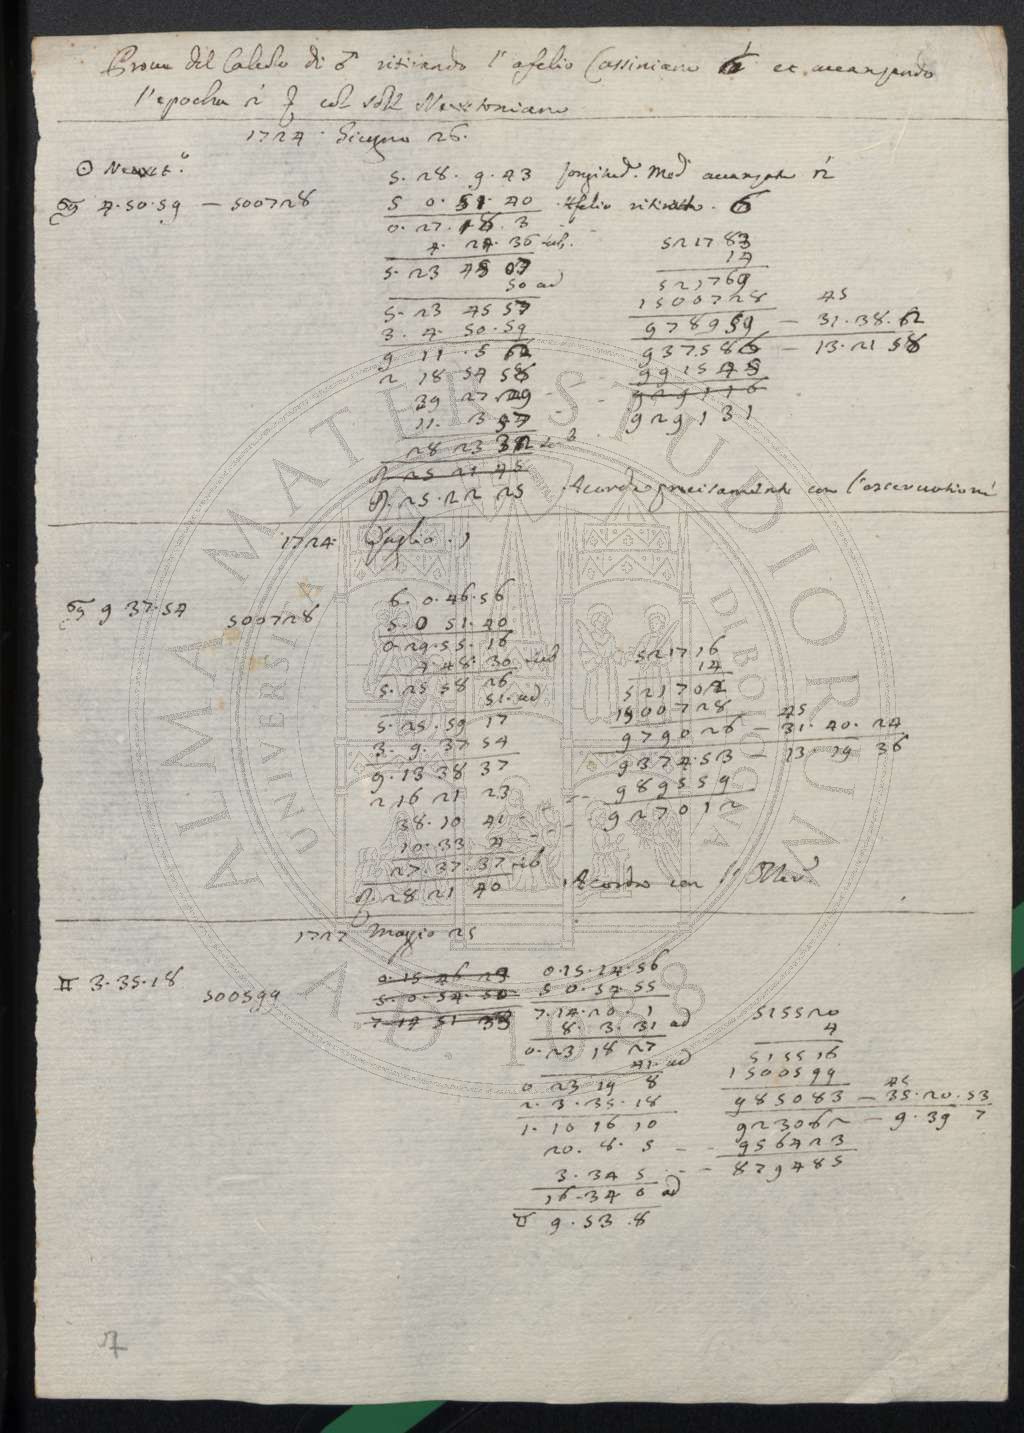 Prova del Calcolo di ♂ ritirando l'afelio Cassiniano 6 et avanzando
l'epocha 2' col sole Newtoniano
1724 Giugno 26.
☉ Newt.º
♋ 4.50.59 — 500728
5. 28. 9. 43 longitud. Med avanzata 2'
5 0. 51. 40 Afelio ritirato. 6
0. 27. 18. 3
4. 24. 36 sub.
5. 23 45 07
50 ad
5. 23 45 57
3. 4. 50. 59
9 11 . 5 2
2 18 54 58
39 27 29
11. 3 57
28 23 32 sub
25 21 45
25. 22 25
521783
14
521769
1500728 45
978959 — 31. 38. 2
937586 — 13. 21 58
991545
929116
929131
Acorda precisamente con l'osservationi
1724. Luglio. 1
♋ 9 37. 54 500728
6. 0. 46. 56
5. 0 51. 40
0. 29. 55. 16
4. 48. 30 sub
5. 25 58 26
51. ad
5. 25. 59 17
3. 9. 37 54
9. 13 38 37
2 16 21 23
38. 10 41
10. 33 4
27. 37. 37 sub
28 21 40
521716
14
521702
1500728 45
979026 — 31. 40. 24
937453 — 13. 19 36
989559
927012
Acorda con l'Osser.
1727 Maggio 25
♊ 3. 35. 18 500599
0. 15 46 29
5. 0. 54. 50
7 14 51 39
0. 15. 14. 56
5 0. 54 55
7. 14. 20. 1
8. 3. 31 ad
0. 23 18 27
41. ad
0 23 19 8
2. 3. 35. 18
1. 10 16 10
20. 8. 5
3. 34 5
16. 34 0 ad
♉ 9. 53. 8
515520
4
515516
1500599 45
985083 — 35. 20. 53
923062 — 9. 39 7
956423
879485
ALMA MATER STUDIORUM
UNIVERSITÀ DI BOLOGNA
A.D. 1088